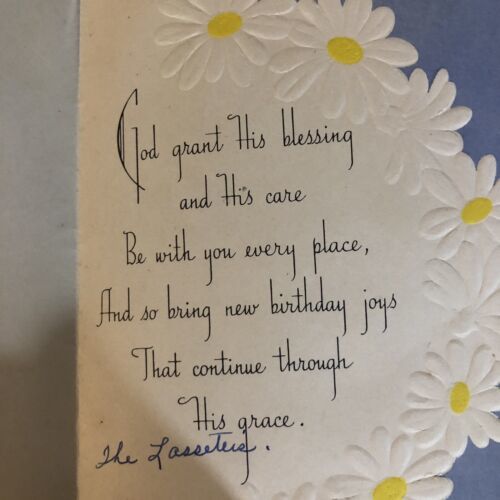 God grant His blessing
and His care
Be with you every place,
And so bring new birthday joys
That continue through
His grace.
The Lasseters.